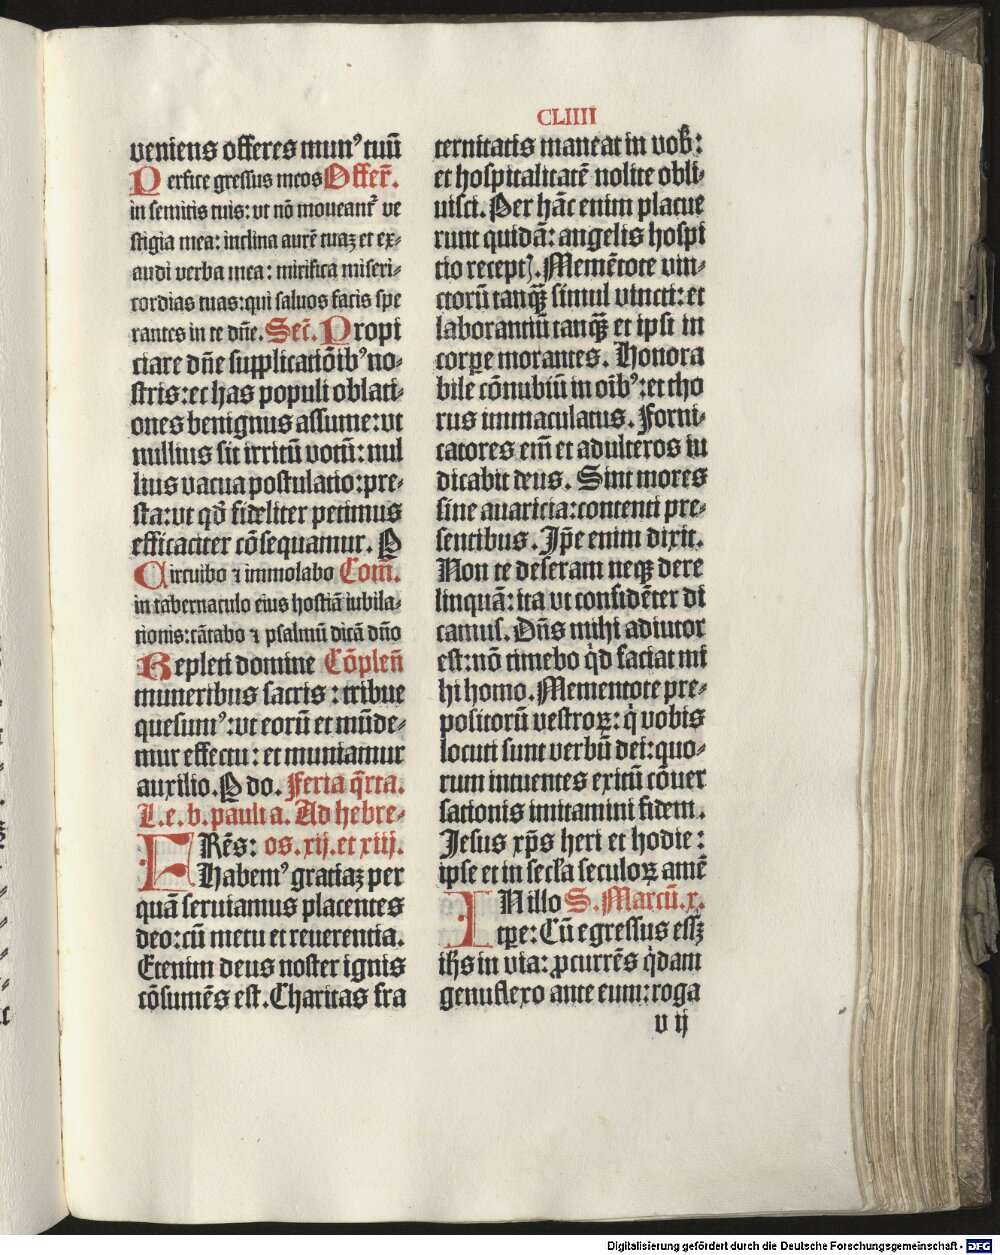 CLIIII
veniens offeres mun⁹ tuū
Perfice gressus meos Offer̄.
in semitis tuis: vt nō moueant᷑ ve
stigia mea: inclina aurē tuaꝫ et ex⸗
audi verba mea: mirifica miseri⸗
cordias tuas: qui saluos facis spe
rantes in te dn̄e. Secr̄. Propi
ciare dn̄e supplicatiōib⁹ no⸗
stris: et has populi oblati⸗
ones benignus assume: vt
nullius sit irritū votū: nul
lius vacua postulatio: pre⸗
sta: vt qđ fideliter petimus
efficaciter cōsequamur. P
Circuibo ⁊ immolabo Com̄.
in tabernaculo eius hostiā iubila⸗
tionis: cātabo ⁊ psalmū dicā dn̄o
Repleti domine Cōplen̄
muneribus sacris: tribue
quesum⁹: vt eorū et mūde⸗
mur effectu: et muniamur
auxilio. P do. Feria q̄rta.
L. e. b. pauli a. Ad hebre⸗
FRēs: os. xij. et xiij.
Habem⁹ gratiaꝫ per
quā seruiamus placentes
deo: cū metu et reuerentia.
Etenim deus noster ignis
cōsumēs est. Charitas fra
ternitatis maneat in vob̄:
et hospitalitatē nolite obli⸗
uisci. Per hāc enim placue
runt quidā: angelis hospi
tio receptꝭ. Memētote vin⸗
ctorū tanqꝫ̄ simul vincti: et
laborantiū tanqꝫ̄ et ipsi in
corꝑe morantes. Honora
bile cōnubiū in oīb⁹: et tho
rus immaculatus. Forni⸗
catores em̄ et adulteros iu
dicabit deus. Sint mores
sine auaricia: contenti pre⸗
sentibus. Ip̄e enim dixit.
Non te deseram neqꝫ dere
linquā: ita vt confidēter di
camus. Dn̄s mihi adiutor
est: nō timebo q̇d faciat mi
hi homo. Mementote pre⸗
positorū vestroꝝ: q̇ vobis
locuti sunt verbū dei: quo⸗
rum intuentes exitū cōuer
sationis imitamini fidem.
Jesus xp̄s heri et hodie:
ipse et in secl̄a seculoꝝ amē
IN illo S. Marcū. x.
tꝑe: Cū egressus essꝫ
ih̄s in via: ꝓcurrēs q̇dam
genuflexo ante eum: roga
v ij
Digitalisierung gefördert durch die Deutsche Forschungsgemeinschaft - DFG